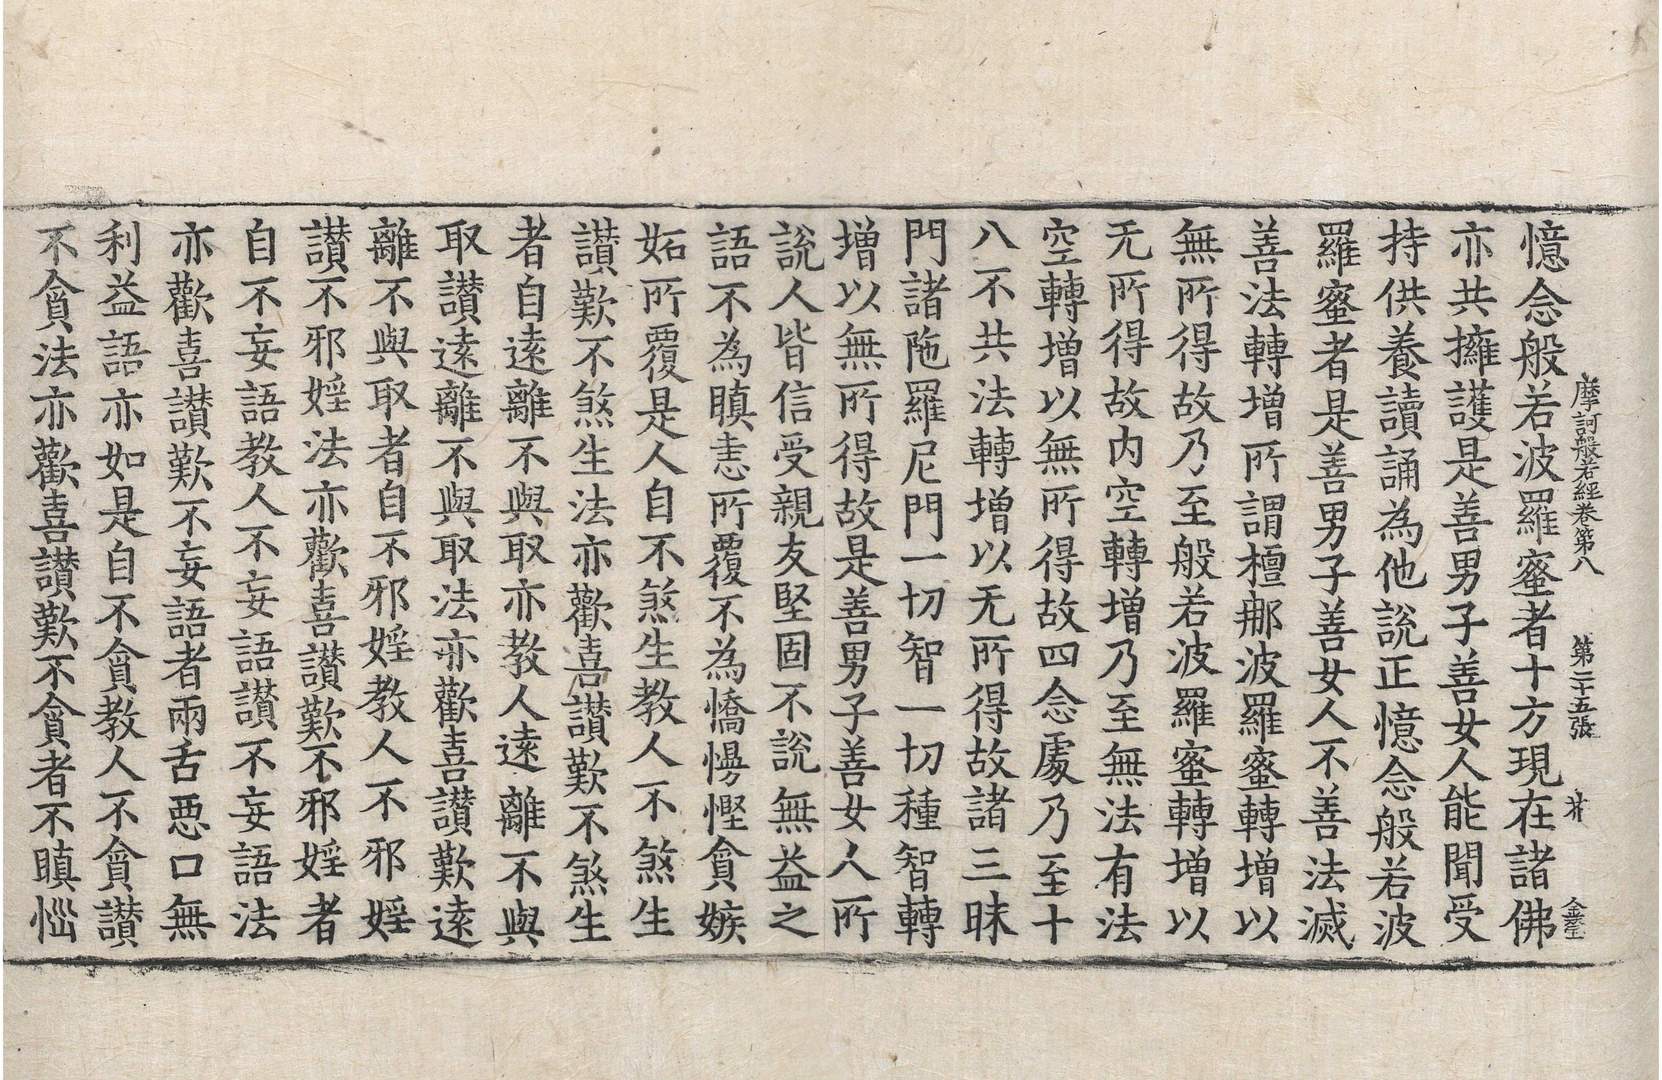 摩訶般若經卷第八　第二十五張　芥
憶念般若波羅蜜者十方現在諸佛
亦共擁護是善男子善女人能聞受
持供養讀誦為他說正憶念般若波
羅蜜者是善男子善女人不善法滅
善法轉增所謂檀那波羅蜜轉增以
無所得故乃至般若波羅蜜轉增以
无所得故内空轉增乃至無法有法
空轉增以無所得故四念處乃至十
八不共法轉增以无所得故諸三昧
門諸陁羅尼門一切智一切種智轉
增以無所得故是善男子善女人所
說人皆信受親友堅固不說無益之
語不為瞋恚所覆不為憍慢慳貪嫉
妬所覆是人自不煞生教人不煞生
讃歎不煞生法亦歡喜讃歎不煞生
者自遠離不與取亦教人遠離不與
取讃遠離不與取法亦歡喜讃歎遠
離不與取者自不邪婬教人不邪婬
讃不邪婬法亦歡喜讃歎不邪婬者
自不妄語教人不妄語讃不妄語法
亦歡喜讃歎不妄語者兩舌惡口無
利益語亦如是自不貪教人不貪讃
不貪法亦歡喜讃歎不貪者不瞋惱